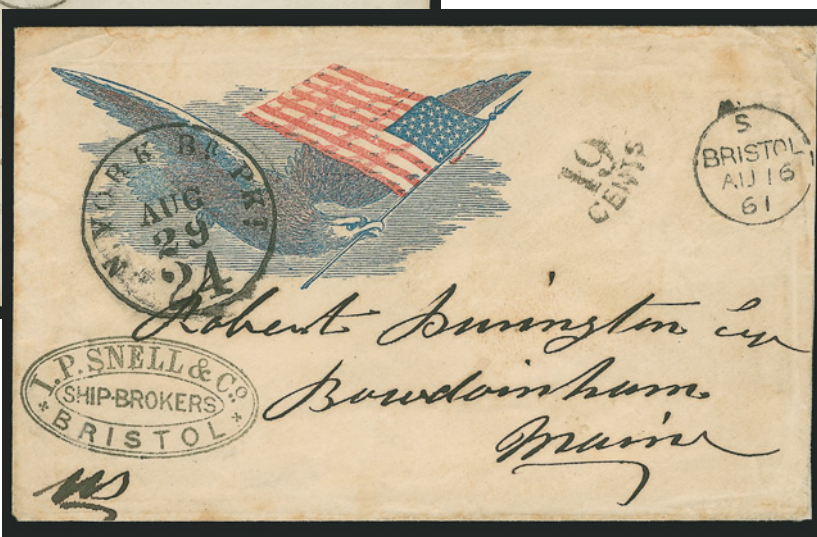 N. YORK BR. PKT
AUG
29
24
19
CENTS
S
BRISTOL
AU 16
61
Robert Purington Esqr
Bowdoinham
Maine
I. P. SNELL & Co
SHIP-BROKERS
BRISTOL
US